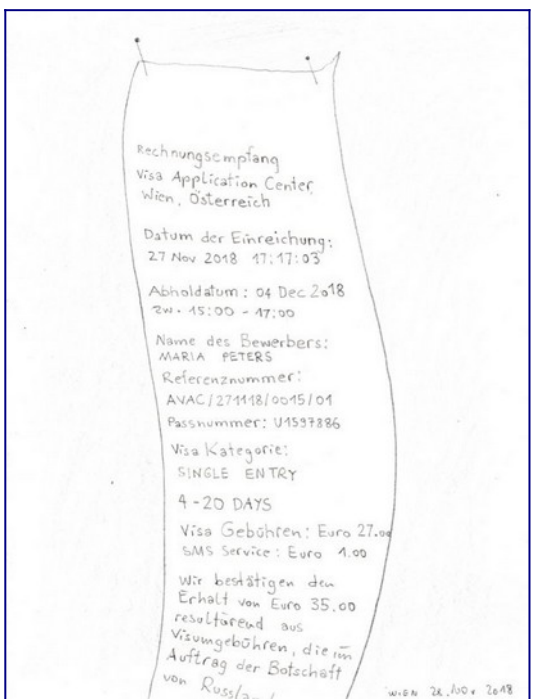 Rechnungsempfang
Visa Application Center,
Wien, Österreich
Datum der Einreichung:
27 Nov 2018 17:17:03
Abholdatum: 04 Dec 2018
zw. 15:00 - 17:00
Name des Bewerbers:
MARIA PETERS
Referenznummer:
AVAC/271118/0015/01
Passnummer: U1597886
Visa Kategorie:
SINGLE ENTRY
4-20 DAYS
Visa Gebühren: Euro 27.00
SMS Service: Euro 1.00
Wir bestätigen den
Erhalt von Euro 35.00
resultierend aus
Visumgebühren, die im
Auftrag der Botschaft
von
WIEN 2018